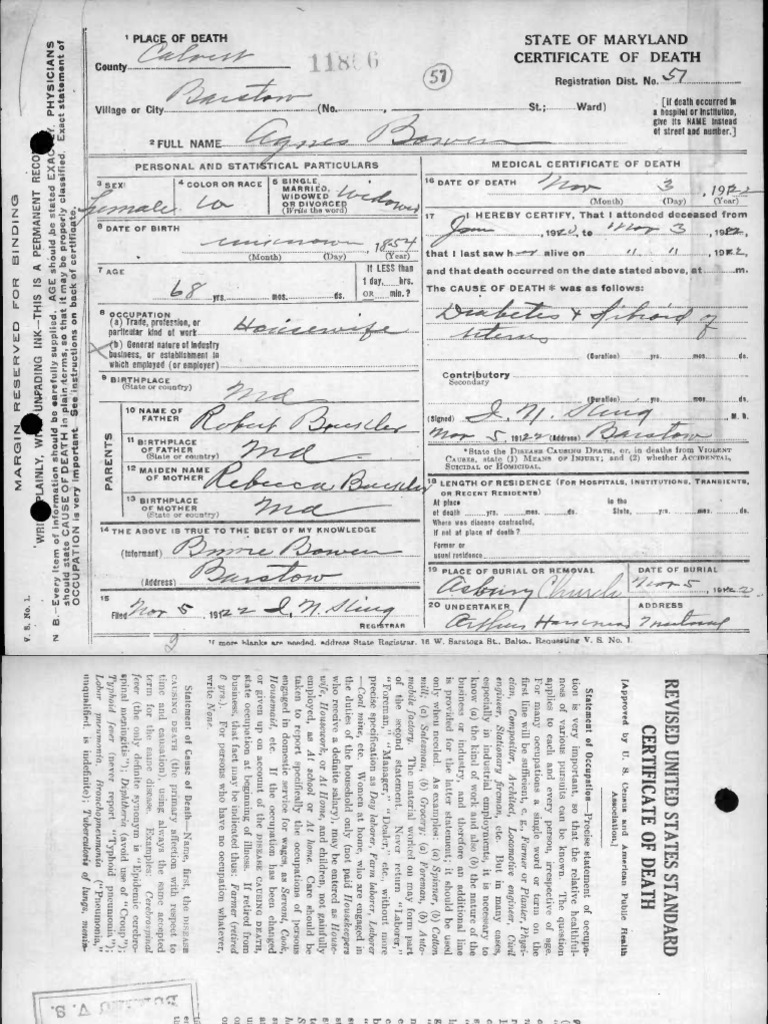 1 PLACE OF DEATH
County Calvert
11866
57
STATE OF MARYLAND
CERTIFICATE OF DEATH
Registration Dist. No. 51
Village or City Barstow (No. , St.; Ward)
[If death occurred in
a hospital or institution,
give its NAME instead
of street and number.]
2 FULL NAME Agnes Bowen
PERSONAL AND STATISTICAL PARTICULARS
3 SEX
female
4 COLOR OR RACE
W
5 SINGLE,
MARRIED,
WIDOWED
OR DIVORCED
(Write the word)
Widowed
6 DATE OF BIRTH
unknown, 1854
(Month) (Day) (Year)
7 AGE
68 yrs. mos. ds.
If LESS than
1 day, hrs.
OR min.?
8 OCCUPATION
(a) Trade, profession, or
particular kind of work Housewife
(b) General nature of industry
business, or establishment in
which employed (or employer)
9 BIRTHPLACE
(State or country) Md
PARENTS
10 NAME OF
FATHER Robert
11 BIRTHPLACE
OF FATHER
(State or country) Md
12 MAIDEN NAME
OF MOTHER Rebecca
13 BIRTHPLACE
OF MOTHER
(State or country) Md
14 THE ABOVE IS TRUE TO THE BEST OF MY KNOWLEDGE
(Informant) Bowen
(Address) Barstow
15
Filed Nov 5, 1922 I. N. King
REGISTRAR
MEDICAL CERTIFICATE OF DEATH
16 DATE OF DEATH Nov 3, 1922
(Month) (Day) (Year)
17 I HEREBY CERTIFY, That I attended deceased from
Jan, 192, to Nov 3, 1922,
that I last saw her alive on " ", 1922
and that death occurred on the date stated above, at m.
The CAUSE OF DEATH * was as follows:
Diabetes & Fibroid of
Uterus
(Duration) yrs. mos. ds.
Contributory
Secondary
(Duration) yrs. mos. ds.
(Signed) I. N. King, M. D.
Nov 5, 1922 (Address) Barstow
*State the DISEASE CAUSING DEATH, or, in deaths from VIOLENT
CAUSES, state (1) MEANS OF INJURY; and (2) whether ACCIDENTAL,
SUICIDAL or HOMICIDAL.
18 LENGTH OF RESIDENCE (FOR HOSPITALS, INSTITUTIONS, TRANSIENTS,
OR RECENT RESIDENTS)
At place In the
of death yrs. mos. ds. State, yrs. mos. ds.
Where was disease contracted,
if not at place of death?
Former or
usual residence
19 PLACE OF BURIAL OR REMOVAL
Asbury Church
DATE OF BURIAL
Nov 5, 1922
20 UNDERTAKER
Arthur
ADDRESS
Mutual
If more blanks are needed, address State Registrar, 16 W. Saratoga St., Balto., Requesting V. S. No. 1.
MARGIN RESERVED FOR BINDING
WRITE PLAINLY, WITH UNFADING INK—THIS IS A PERMANENT RECORD
N. B.—Every item of information should be carefully supplied. AGE should be stated EXACTLY. PHYSICIANS
should state CAUSE OF DEATH in plain terms, so that it may be properly classified. Exact statement of
OCCUPATION is very important. See instructions on back of certificate.
V. S. No. 1.
REVISED UNITED STATES STANDARD
CERTIFICATE OF DEATH
[Approved by U. S. Census and American Public Health
Association.]
Statement of Occupation—Precise statement of occupa-
tion is very important, so that the relative healthful-
ness of various pursuits can be known. The question
applies to each and every person, irrespective of age.
For many occupations a single word or term on the
first line will be sufficient, e. g., Farmer or Planter, Physi-
cian, Compositor, Architect, Locomotive engineer, Civil
engineer, Stationary fireman, etc. But in many cases,
especially in industrial employments, it is necessary to
know (a) the kind of work and also (b) the nature of the
business or industry, and therefore an additional line
is provided for the latter statement; it should be used
only when needed. As examples: (a) Spinner, (b) Cotton
mill; (a) Salesman, (b) Grocery; (a) Foreman, (b) Auto-
mobile factory. The material worked on may form part
of the second statement. Never return "Laborer,"
"Foreman," "Manager," "Dealer," etc., without more
precise specification as Day laborer, Farm laborer, Laborer
—Coal mine, etc. Women at home, who are engaged in
the duties of the household only (not paid Housekeepers
who receive a definite salary), may be entered as House-
wife, Housework, or At Home, and children, not gainfully
employed, as At school or At home. Care should be
taken to report specifically the occupations of persons
engaged in domestic service for wages, as Servant, Cook,
Housemaid, etc. If the occupation has been changed
or given up on account of the DISEASE CAUSING DEATH,
state occupation at beginning of illness. If retired from
business, that fact may be indicated thus: Farmer (retired
6 yrs.). For persons who have no occupation whatever,
write None.
Statement of Cause of Death—Name, first, the DISEASE
CAUSING DEATH (the primary affection with respect to
time and causation), using always the same accepted
term for the same disease. Examples: Cerebrospinal
fever (the only definite synonym is "Epidemic cerebro-
spinal meningitis"); Diphtheria (avoid use of "Croup");
Typhoid fever (never report "Typhoid pneumonia");
Lobar pneumonia; Bronchopneumonia ("Pneumonia,"
unqualified, is indefinite); Tuberculosis of lungs, menin-
BUREAU V. S.